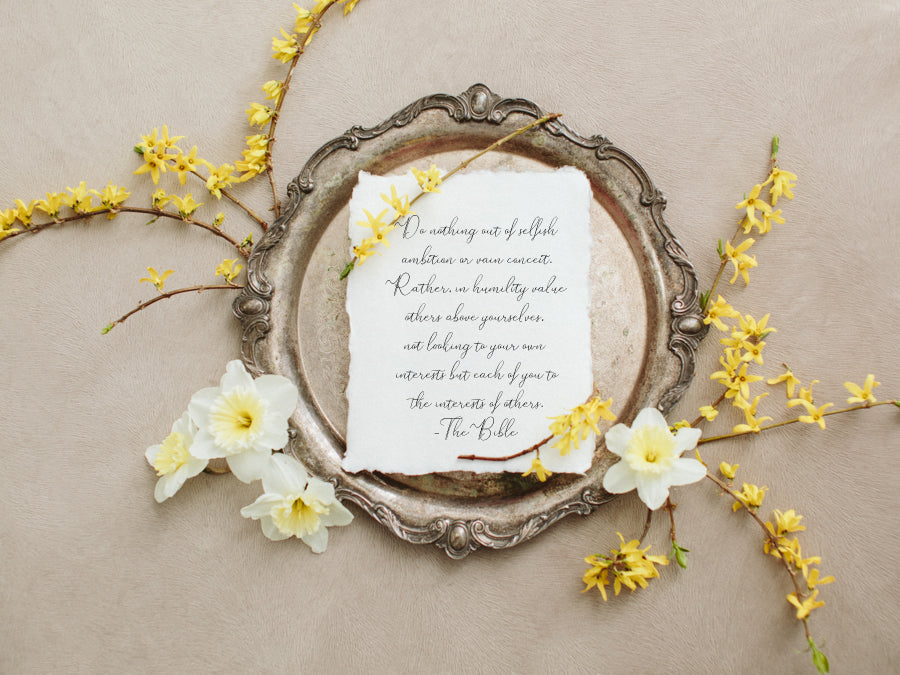 "Do nothing out of selfish
ambition or vain conceit.
Rather, in humility value
others above yourselves,
not looking to your own
interests but each of you to
the interests of others.
-The Bible